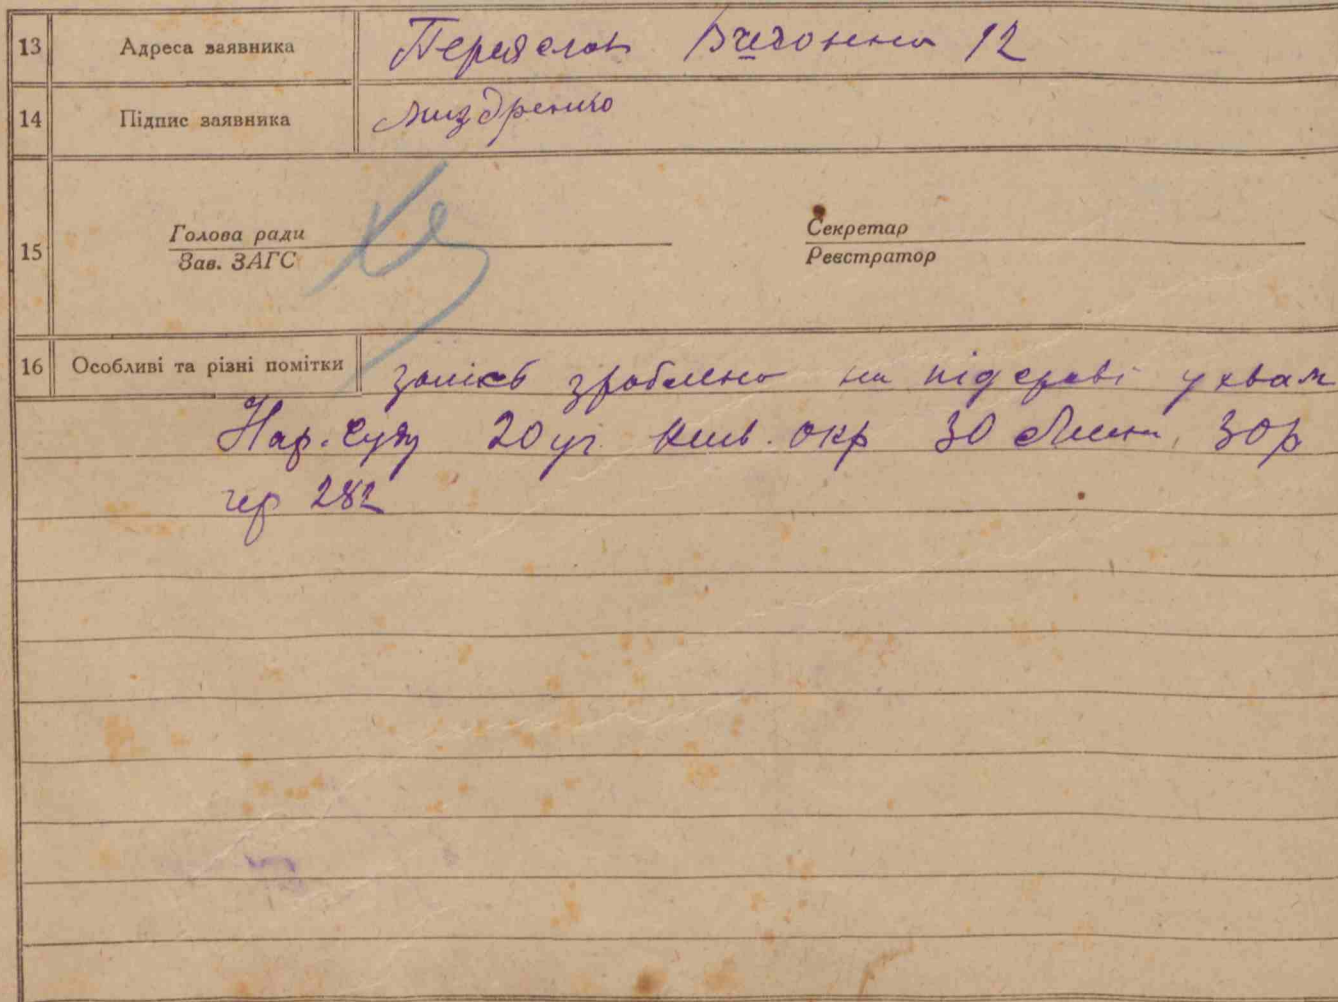 13 Адреса заявника Переяслав 12
14 Підпис заявника Миздренко
15 Голова ради Секретар
Зав. ЗАГС Реєстратор
16 Особливі та різні помітки запись зроблено на підставі ухвал
Нар. суду 20 уч. Киів. окр 30 30 р
282